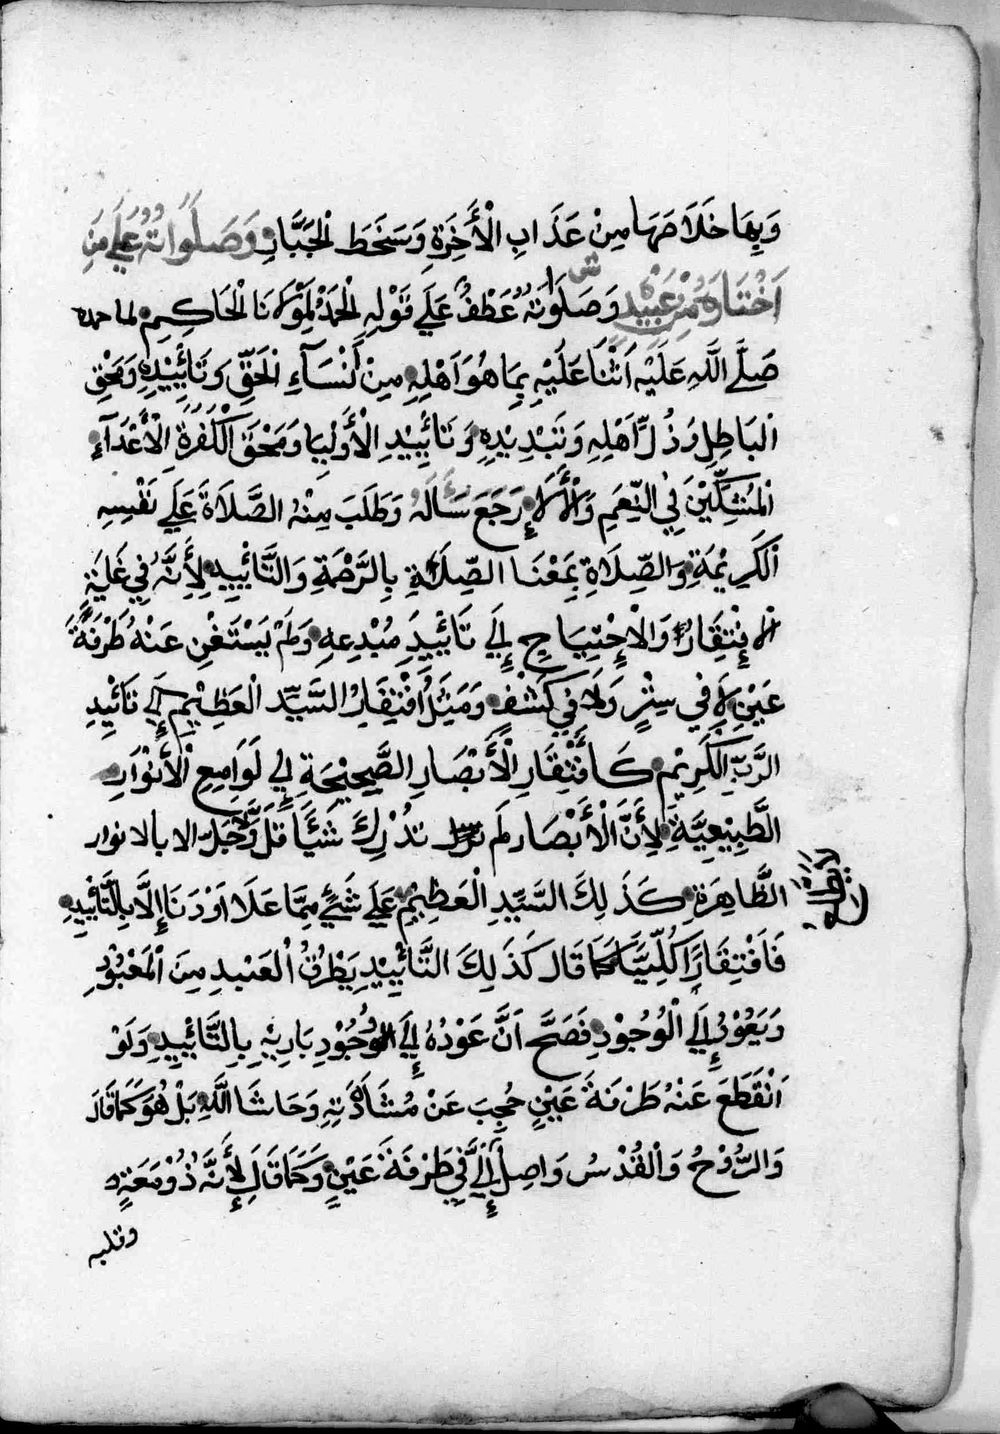 وَبِهَا خَلَاصَهَا مِنْ عَذَابِ الْأَخِرَةِ وَسَخَطَ الْجَبَّارِ وَصَلَوَاتُهُ عَلَي مَنِ
اَخْتَارَهُ مِنْ عَبِيْدٍ وَصَلَوَاتُهُ عَطْفٌ عَلَي قَوْلِهِ الْحَمْدُ لِمَوْلَانَا الْحَاكِمِ لما حمده
صَلَّي اللَّهِ عَلَيْهِ اَثْنَا عَلَيْهِ بِمَا هُوَ اَهْلِهِ مِنْ أَنْسَآءِ الْحَقِّ وَتَأَيِيْدِهِ وَمَحْقِ
الْبَاطِلِ وَذُلِّ اَهْلِهِ وَتَبْدِيْدِهِ وَتَائِيِيْدِ الْأَوْلِيَا وَمَحْقَ الْكَفَرَةِ الْأَعْدَآءِ
الْمُشِكِّيْنَ فِي النِّعَمِ وَالْأَلَاءِ رَجَعَ سَأَلَهُ وَطَلَبَ مِنْهُ الصَّلَاةَ عَلَي نَفْسِهِ
الْكَرِيْمَةِ وَالصِّلَاةِ بِمَعْنَا الصِّلَةِ بِالرَّحْمَةِ وَالتَّائِيْيدِ لِأَنَّهُ فِي غَايَةِ
الْإِفْتِقَارِ وَالْإِحْتِيَاجِ إِلَي تَائِيْيدِ مُبْدِعِهِ وَلَمْ يَسْتَغْنِ عَنْهُ طَرْفَةَ
عَيْنٍ لَا فِي سِتْرٍ وَلَا فِي كَشْفٍ وَمَثِلُ أَفْتِقَارُ السَّيِّدِ الْعَظِيْمِ إِلَي تَائِيْدِ
الرَّبِّ الْكَرِيْمِ كَأَفْتِقَارِ الْأَبْصَارِ الصَّحِيْحَةِ إِلَي لَوَامِعِ الْأَنْوَارِ
الطَّبِيْعِيَّةِ لِأَنَّ الْأَبْصَار لَم تُدْرِكَ شَيْأً قَلَّ وَلَا جَلَّ الا بالانوار
الظَّاهِرَةِ كَذَلِكَ السَّيِّدِ الْعَظِيْمُ عَلَي شَئٍ مِمَّا عَلَا اَوْ دَنَا إِلَّا بِالتَّائِيْدِ
فَاَفْتِقَارًا كُلِّيًّا كَمَا قَالَ كَذَلِكَ التَّائِيْيدِ يَطْرُقُ الْعَبْيدِ مِنَ الْمَعْبُوْدِ
وَيَعُوْدُ إِلَي الْوُجُوْدِ فَصَحَّ اَنَّ عَوْدُهُ إِلَي الْوُجُوْدِ بَارِيْهِ بِالتَّائِيْيدِ وَلَوْ
اَنْقَطَعَ عَنْهُ طَرْفَةَ عَيْنٍ حُجِبَ عَنْ مُشَادَتِهِ وَحَاشَا اللَّهِ بَلْ هُوَ كَمَا قَالَ
وَالرُّوْحُ وَالْقُدْسُ وَاصِلُ إِلَيَّ فِي طَرْفَةَ عَيْنٍ وَكَمَا قَالَ لِأَنَّهُ ذُوْمَعَةٍ
وقلبه